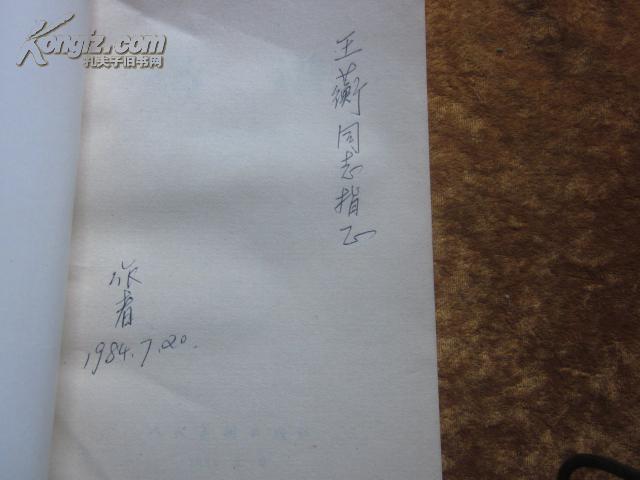 Kongfz.com
孔夫子旧书网
王蘅同志指正
作者
1984.7.20.